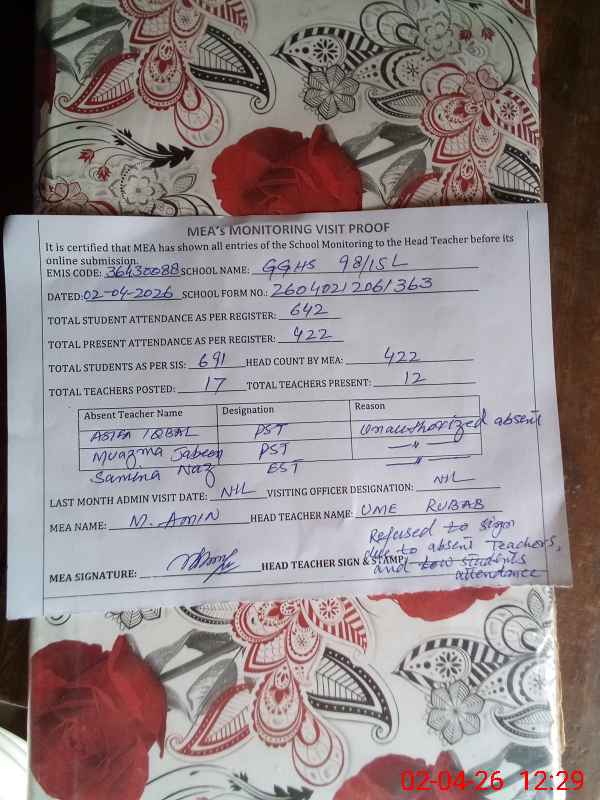 MEA'S MONITORING VISIT PROOF
It is certified that MEA has shown all entries of the School Monitoring to the Head Teacher before its
online submission.
EMIS CODE: 36430088 SCHOOL NAME: GGHS 98/15L
DATED: 02-04-2026 SCHOOL FORM NO.: 26040212061363
TOTAL STUDENT ATTENDANCE AS PER REGISTER: 642
TOTAL PRESENT ATTENDANCE AS PER REGISTER: 422
TOTAL STUDENTS AS PER SIS: 691 HEAD COUNT BY MEA: 422
TOTAL TEACHERS POSTED: 17 TOTAL TEACHERS PRESENT: 12
Absent Teacher Name Designation Reason
ASIFA IQBAL PST Unauthorized absent
Muazma Jabeen PST —"—
Samina Naz EST —"—
LAST MONTH ADMIN VISIT DATE: NIL VISITING OFFICER DESIGNATION: NIL
MEA NAME: M. AMIN HEAD TEACHER NAME: UME RUBAB
MEA SIGNATURE: HEAD TEACHER SIGN & STAMP:
Refused to sign
due to absent Teachers,
and low students
attendance
02-04-26 12:29